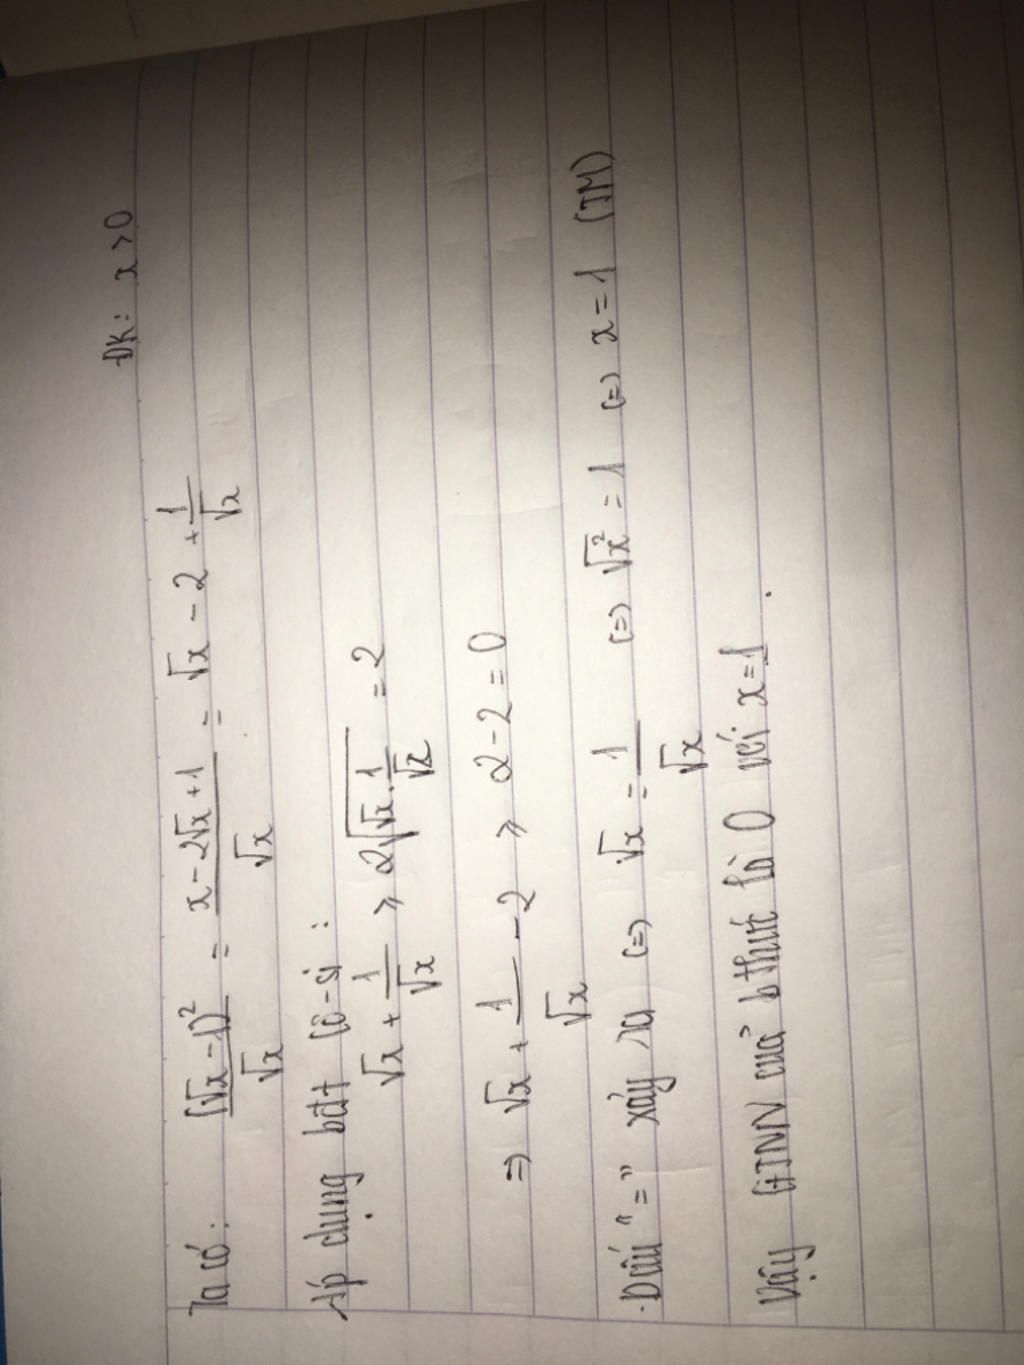 ĐK: x > 0
Ta có: (√x - 1)²/√x = (x - 2√x + 1)/√x = √x - 2 + 1/√x
Áp dụng bđt Cô-si:
√x + 1/√x ≥ 2√(√x . 1/√x) = 2
=> √x + 1/√x - 2 ≥ 2 - 2 = 0
Dấu "=" xảy ra (=) √x = 1/√x (=) √x² = 1 (=) x = 1 (TM)
Vậy GTNN của b thức là 0 với x = 1.